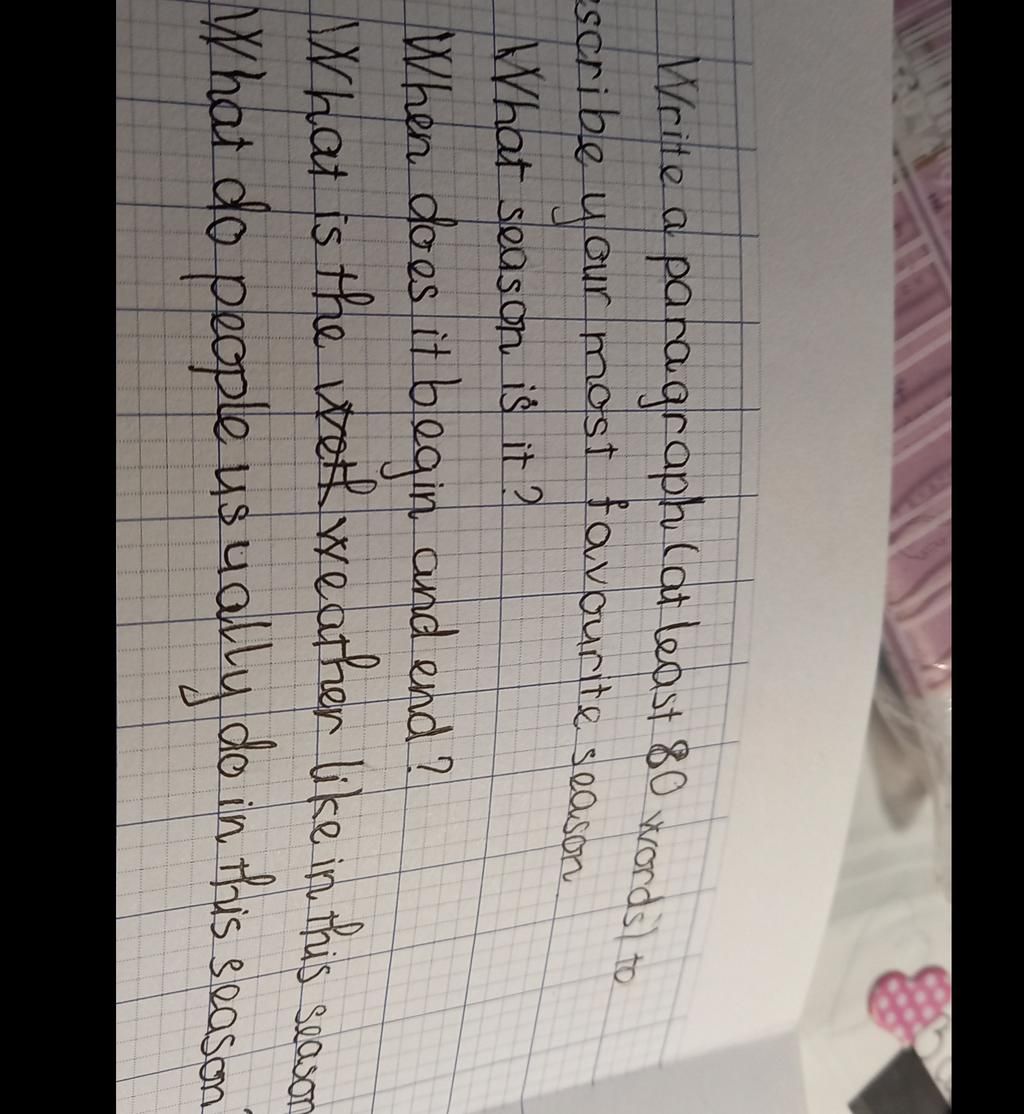 Write a paragraph (at least 80 words) to
escribe your most favourite season
What season is it?
When does it begin and end?
What is the weather like in this season
What do people usually do in this season